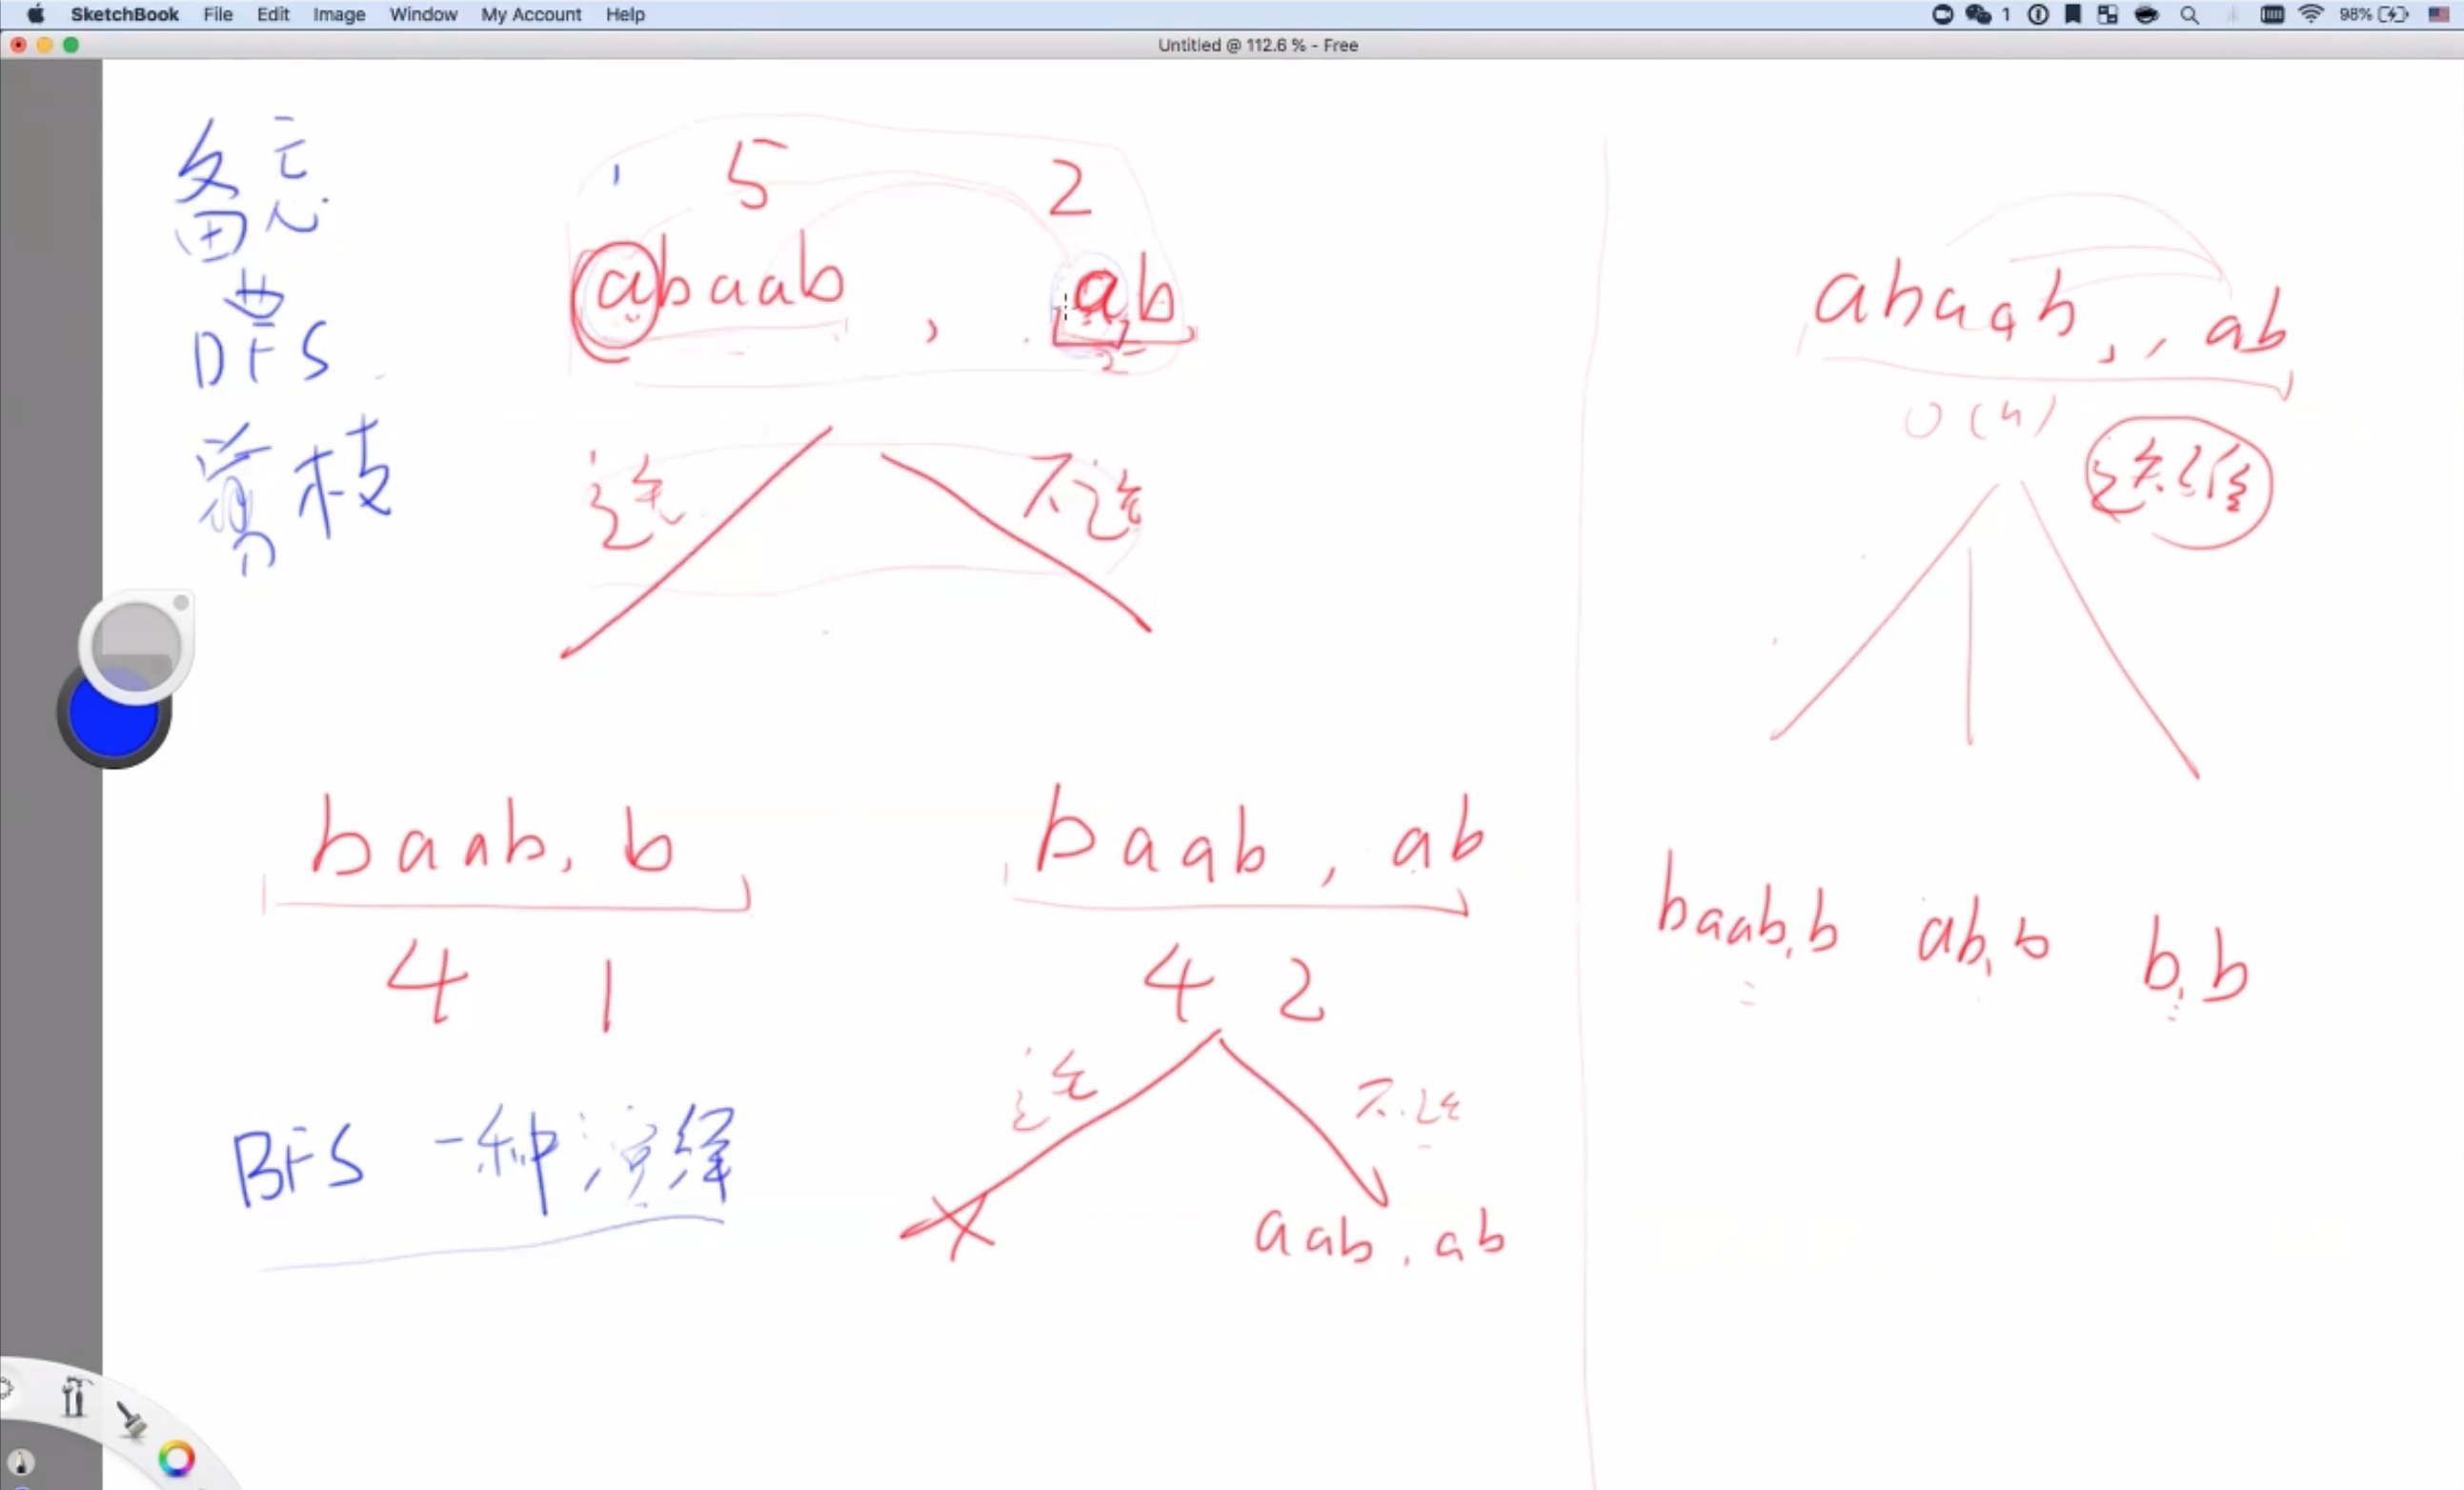 SketchBook File Edit Image Window My Account Help 1 98%
Untitled @ 112.6 % - Free
备忘
DFS
剪枝
5 2
abaab , ab
选 不选
baab, b
4 1
baab , ab
4 2
选 不选
aab , ab
BFS 一种演绎
abaab , , ab
O(n)
baab, b ab, b b, b